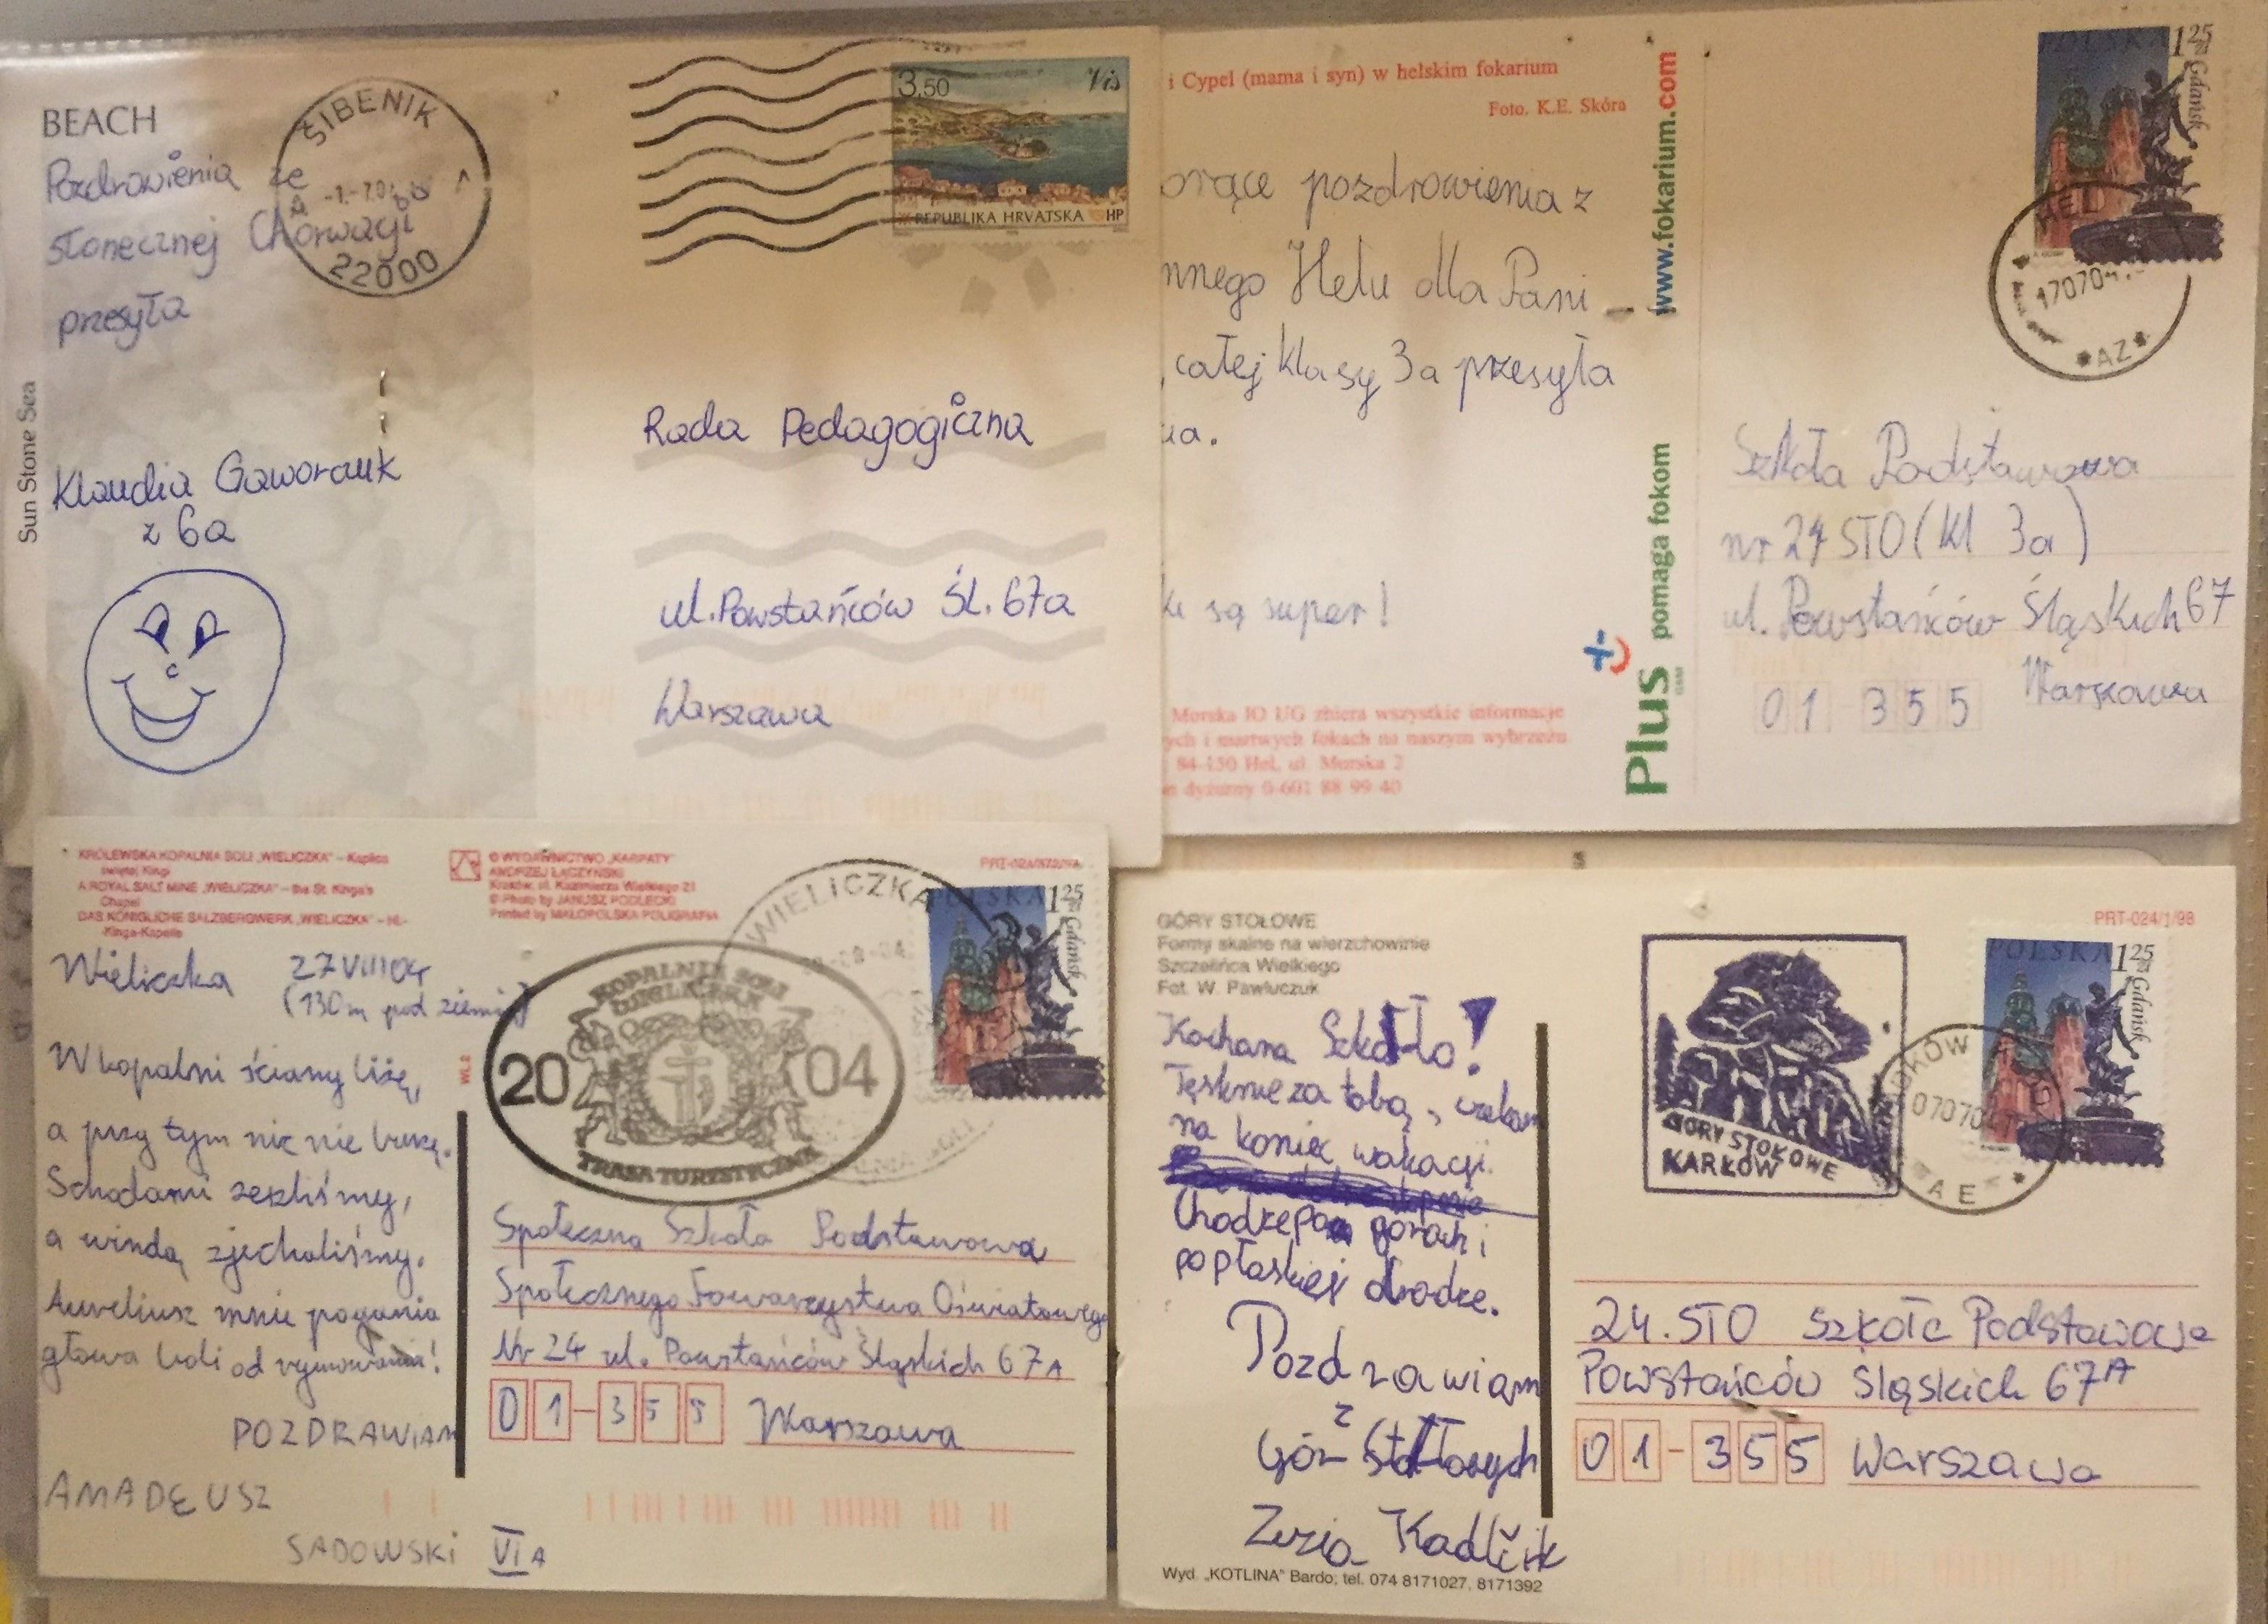 BEACH
Pozdrowienia ze
słonecznej Chorwacji
przesyła
Klaudia
z 6a
Sun Stone Sea
ŠIBENIK
22000
3,50
Vis
REPUBLIKA HRVATSKA HP
Rada Pedagogiczna
ul. Powstańców Śl. 67a
Warszawa
i Cypel (mama i syn) w helskim fokarium
Foto. K.E. Skóra
orące pozdrowienia z
nnego Helu dla Pani
całej klasy 3a przesyła
ia.
są super!
Morska IO UG zbiera wszystkie informacje
ych i martwych fokach na naszym wybrzeżu
84-150 Hel, ul. Morska 2
n dyżurny 0-601 88 99 40
www.fokarium.com
Plus pomaga fokom
GSM
POLSKA 1 25 zł
Gdańsk
HEL
170704
*AZ*
Szkoła Podstawowa
nr 24 STO (kl 3a)
ul. Powstańców Śląskich 67
Warszawa
01 355
KRÓLEWSKA KOPALNIA SOLI „WIELICZKA" – Kaplica
świętej Kingi
A ROYAL SALT MINE „WIELICZKA" – the St. Kinga's
Chapel
DAS KÖNIGLICHE SALZBERGWERK „WIELICZKA" – Hl.-
Kinga-Kapelle
© WYDAWNICTWO „KARPATY"
ANDRZEJ ŁĄCZYŃSKI
Kraków, ul. Kazimierza Wielkiego 21
© Photo by JANUSZ PODLECKI
Printed by MAŁOPOLSKA POLIGRAFIA
Wieliczka 27 VIII 04r
(130m pod ziemią)
W kopalni ściany liżę,
a przy tym nic nie burzę.
Schodami zeszliśmy,
a windą zjechaliśmy.
Aureliusz mnie pogania
głowa boli od rymowania!
POZDRAWIAM
AMADEUSZ
SADOWSKI VI A
WIELICZKA
KOPALNIA SOLI
WIELICZKA
20 04
TRASA TURYSTYCZNA
POLSKA 1 25 zł
Gdańsk
Społeczna Szkoła Podstawowa
Społecznego Towarzystwa Oświatowego
Nr 24 ul. Powstańców Śląskich 67A
01-355 Warszawa
GÓRY STOŁOWE
Formy skalne na wierzchowinie
Szczelińca Wielkiego
Fot. W. Pawłuczuk
PRT-024/1/98
Kochana Szkoło!
Tęsknie za tobą, czekam
na koniec wakacji.
Chodze po górach i
po płaskiej drodze.
Pozdrawiam
z
Gór Stołowych
Zuzia
Wyd. „KOTLINA" Bardo; tel. 074 8171027, 8171392
GÓRY STOŁOWE
KARŁÓW
POLSKA 1 25 zł
Gdańsk
070704
A E *
24. STO Szkołe Podstawowe
Powstańców Śląskich 67A
01-355 Warszawa